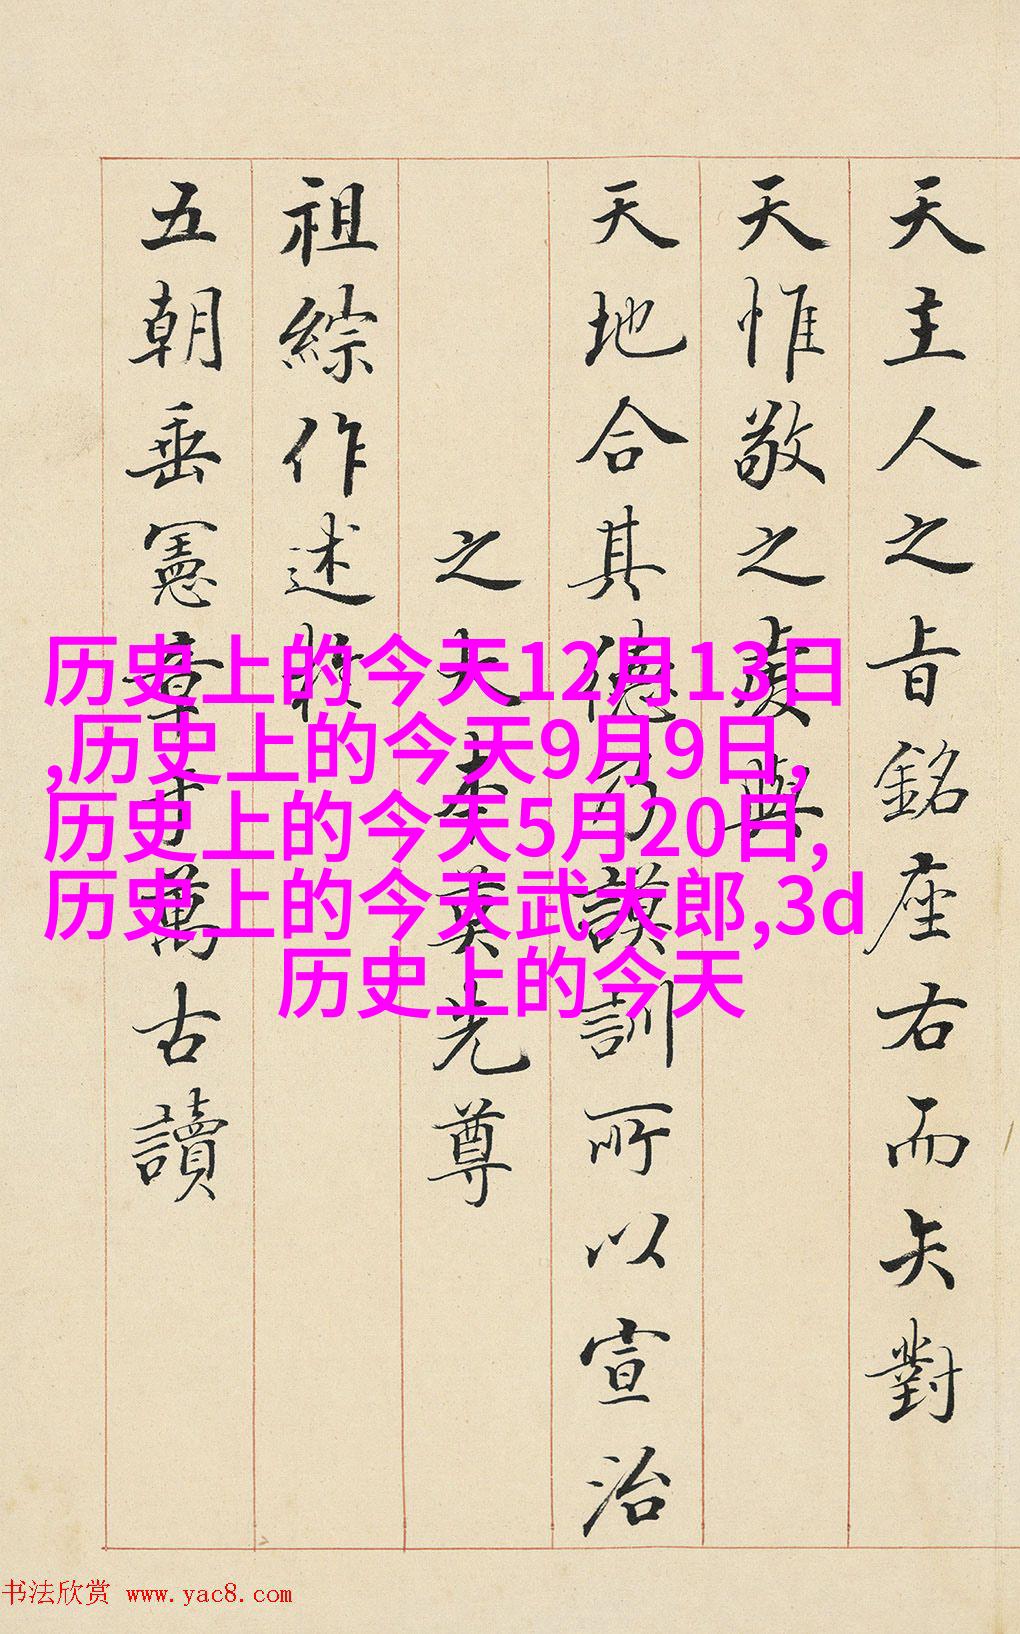 天主人之旨銘座右而矢對
天惟敬之虔與
天地合其德乃謨訓所以宣治
之大本莫先尊
祖綜作述
五朝垂憲章于萬古讀
历史上的今天12月13日
,历史上的今天9月9日,
历史上的今天5月20日,
历史上的今天武大郎,3d
历史上的今天
书法欣赏 www.yac8.com